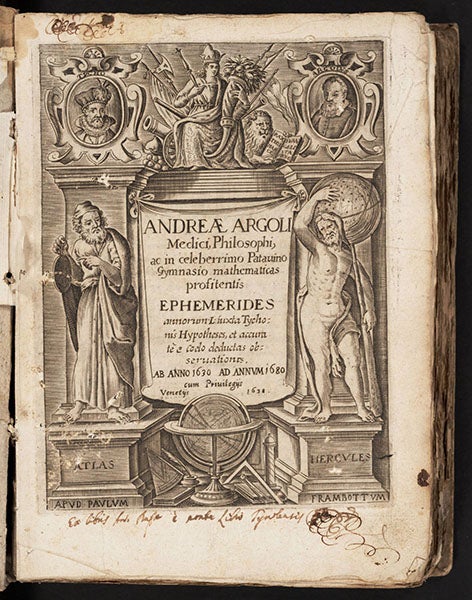 ANDREÆ ARGOLI
Medici, Philosophi,
ac in celeberrimo Patavino
Gymnasio mathematicas
profitentis
EPHEMERIDES
annorum L iuxta Tycho-
nis Hypotheses, et accura-
tè e coelo deductas ob-
servationes.
AB ANNO 1630 AD ANNVM 1680
cum Privilegijs
Venetijs 1638.
ATLAS
HERCVLES
APVD PAVLVM
FRAMBOTTVM
Ex libris